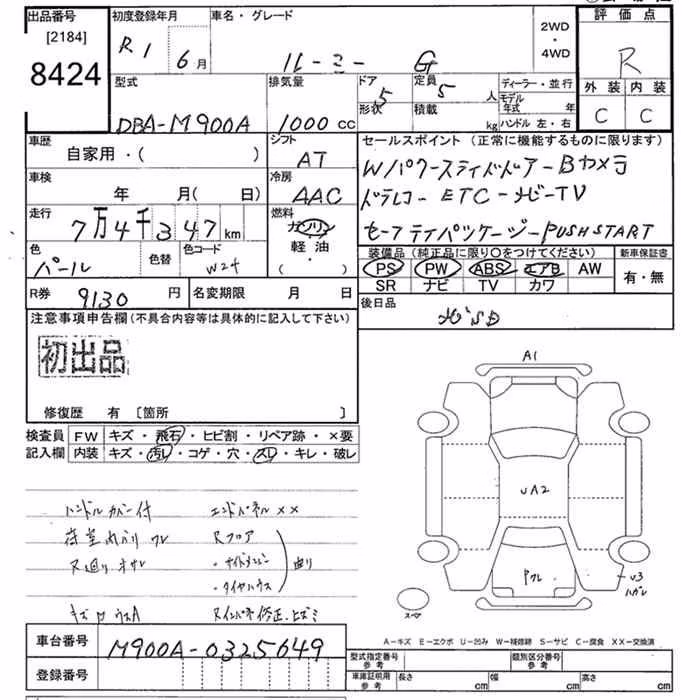 出品番号
[2184]
8424
初度登録年月
R1 6月
車名・グレード
ルーミー G
2WD
・
4WD
評価点
R
外装 内装
C C
型式
DBA-M900A
排気量
1000 cc
ドア
5
形状
定員
5 人
積載
kg
ディーラー・並行
モデル年式 年
ハンドル 左・右
車歴
自家用・( )
シフト
AT
セールスポイント (正常に機能するものに限ります)
Wパワースライドドアー Bカメラ
ドラレコー ETC ーナビーTV
セーフティパッケージー PUSH START
車検
年 月( 日)
冷房
AAC
走行
7万4千347km
燃料
ガソリン
軽油
・( )
色
パール
色替
色コード
W24
装備品 (純正品に限り○をつけてください)
PS PW ABS エアB AW
SR ナビ TV カワ
新車保証書
有・無
R券 9130 円
名変期限 月 日
後日品
ナビSD
注意事項申告欄(不具合内容等は具体的に記入して下さい)
初出品
修復歴 有 〔箇所 〕
検査員
記入欄
FW キズ・飛石・ヒビ割・リペア跡・×要
内装 キズ・汚レ・コゲ・穴・スレ・キレ・破レ
ハンドルカバー付
エンドパネル××
荷室内張り ワレ
Rフロア
・サイドメンバー
・タイヤハウス
曲り
A1
UA2
Pワレ
U3
スペア
車台番号 M900A-0325649
登録番号
A-キズ E-エクボ U-凹み W-補修跡 S-サビ C-腐食 XX-交換済
型式指定番号
参考
類別区分番号
参考
車庫証明用
参考
長さ cm
幅 cm
高さ cm